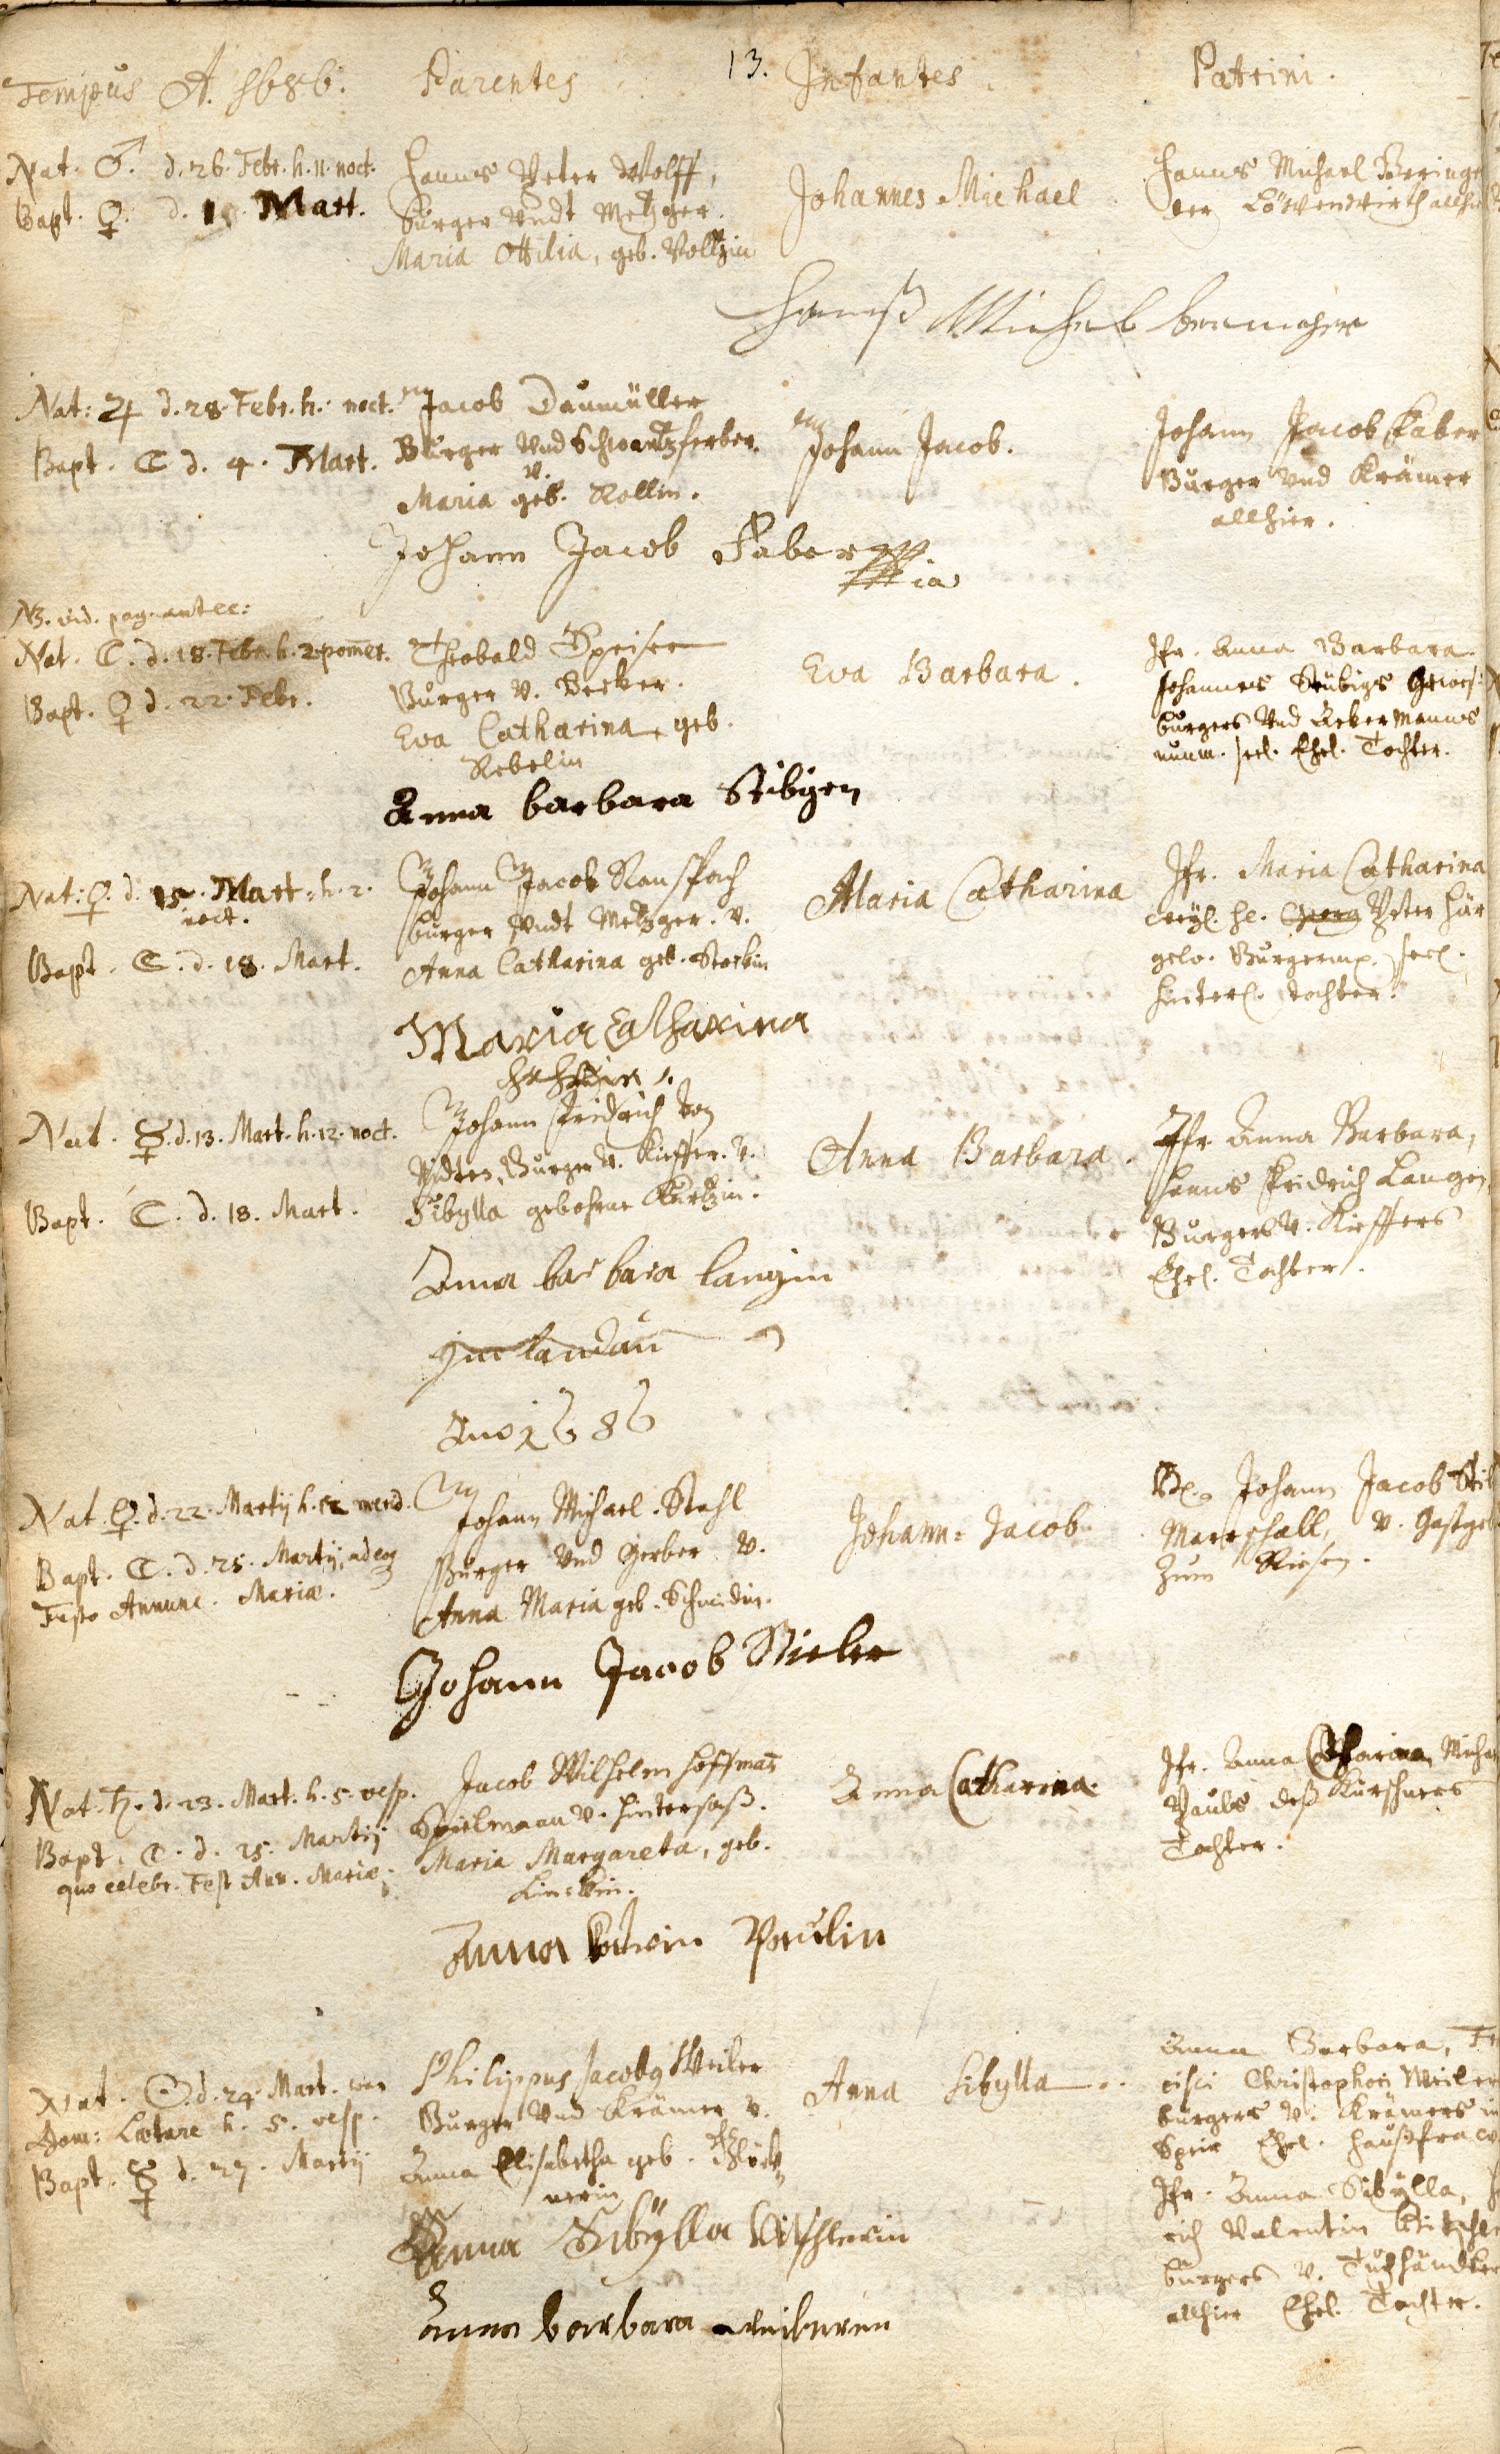 13.
Tempus A. 1686. Parentes Infantes. Patrini.
Nat. ♂. d. 26. Febr. h. 11. noct.
Bapt. ♀. d. Mart.
Hanns Peter Wolff,
burger undt Metzger.
Maria Ottilia, geb. Voltzin
Johannes Michael
Hanns Michael Beringer
der Löwenwirth allhie
Hannß Michel
Nat: ♃ d. 28. Febr. h. noct.
Bapt. ☾ d. 4. Mart.
Jacob Daumüller
Bürger und Schwartzferber.
v.
Maria geb. Rollin.
Johann Jacob.
Johann Jacob Faber
Burger und Krämer
allhier.
Johann Jacob Faber
NB. vid. pag. antec:
Nat. ☾. d. 18. Febr. h. 2. pomer.
Bapt. ♀ d. 22. Febr.
Theobald Speiser
Burger v. Becker.
Eva Catharina, geb.
Rebelin
Eva Barbara.
Jfr. Anna Barbara
Johannes Stübigs
burgers und Ackermanns
nunm. seel. Ehel. Tochter.
Anna barbara Stibgen
Nat: ♀. d. 15. Mart. h. 2.
noct.
Bapt. ☾. d. 18. Mart.
Johann Jacob Ranspach
burger undt Metzger. v.
Anna Catharina geb. Storkin
Maria Catharina
Jfr. Maria Catharina
weyl. H. Georg Peter Här
gew. Burgerm. seel.
hinterl. tochter.
Maria Catharina
Nat. ☿. d. 13. Mart. h. 12. noct.
Bapt. ☾. d. 18. Mart.
Johann Fridrich
Burger v. Kieffer. v.
Sibylla gebohrne Kurtzin.
Anna Barbara.
Jfr Anna Barbara,
Hanns Fridrich Langen,
Burgers v. Kieffers
Ehel. Tochter.
Anna barbara langin
in landau
Ano 1686
Nat. ♀. d. 22. Martij h. 12 merid.
Bapt. ☾. d. 25. Martij,
Festo Annunc. Mariæ.
Johann Michael Stahl
Burger und Gerber v.
Anna Maria geb. Schmidin.
Johann Jacob
H. Johann Jacob Stib
Marschall, v. Gastgeb
zum Riesen.
Johann Jacob Stieber
Nat. ♄. d. 23. Mart. h. 5. vesp.
Bapt. ☾. d. 25. Martij
quo celebr. Fest Ann. Mariæ.
Jacob Wilhelm Hoffman
Spielmann v. Hintersaß.
Maria Margareta, geb.
Linckin.
Anna Catharina.
Jfr. Anna Catharina, Micha
Pauls deß Kürschners
Tochter.
Anna Paulin
Nat. ☉. d. 24. Mart. war
Dom: Lætare h. 5. vesp.
Bapt. ☿ d. 27. Martij
Philippus Jacoby Weiler
Burger und Krämer v.
Anna Elisabetha geb.
nerin
Anna Sibylla
Anna Barbara,
Christophori Weiler
burgers v. Krämers in
Speir Ehel. haußfraw
Jfr. Anna Sibylla,
Valentin
burgers v. Tuchhändler
allhier Ehel. Tochter.
Anna Sibÿlla
Anna barbara weilerin